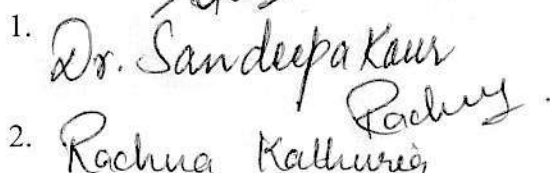 1.
Dr. Sandeepa Kaur
2. Rachna Kathuria